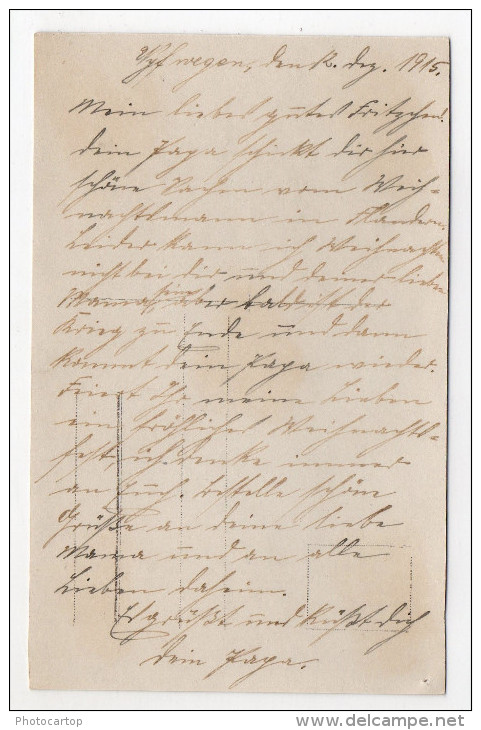 den 12. Dez. 1915.
Mein liebes gutes Fritzchen!
dein Papa schickt dir hier
schöne Sachen vom Weih-
nachtsmann in Flandern.
Leider kann ich Weihnachten
nicht bei dir und deiner lieben
Mama sein, aber bald ist der
Krieg zu Ende und dann
kommt dein Papa wieder.
Feiert Ihr meine Lieben
ein fröhliches Weihnachts-
fest, ich denke immer
an Euch. Bestelle schöne
Grüße an deine liebe
Mama und an alle
Lieben daheim.
Es grüßt und küßt dich
dein Papa.
Photocartop
delcampe.net